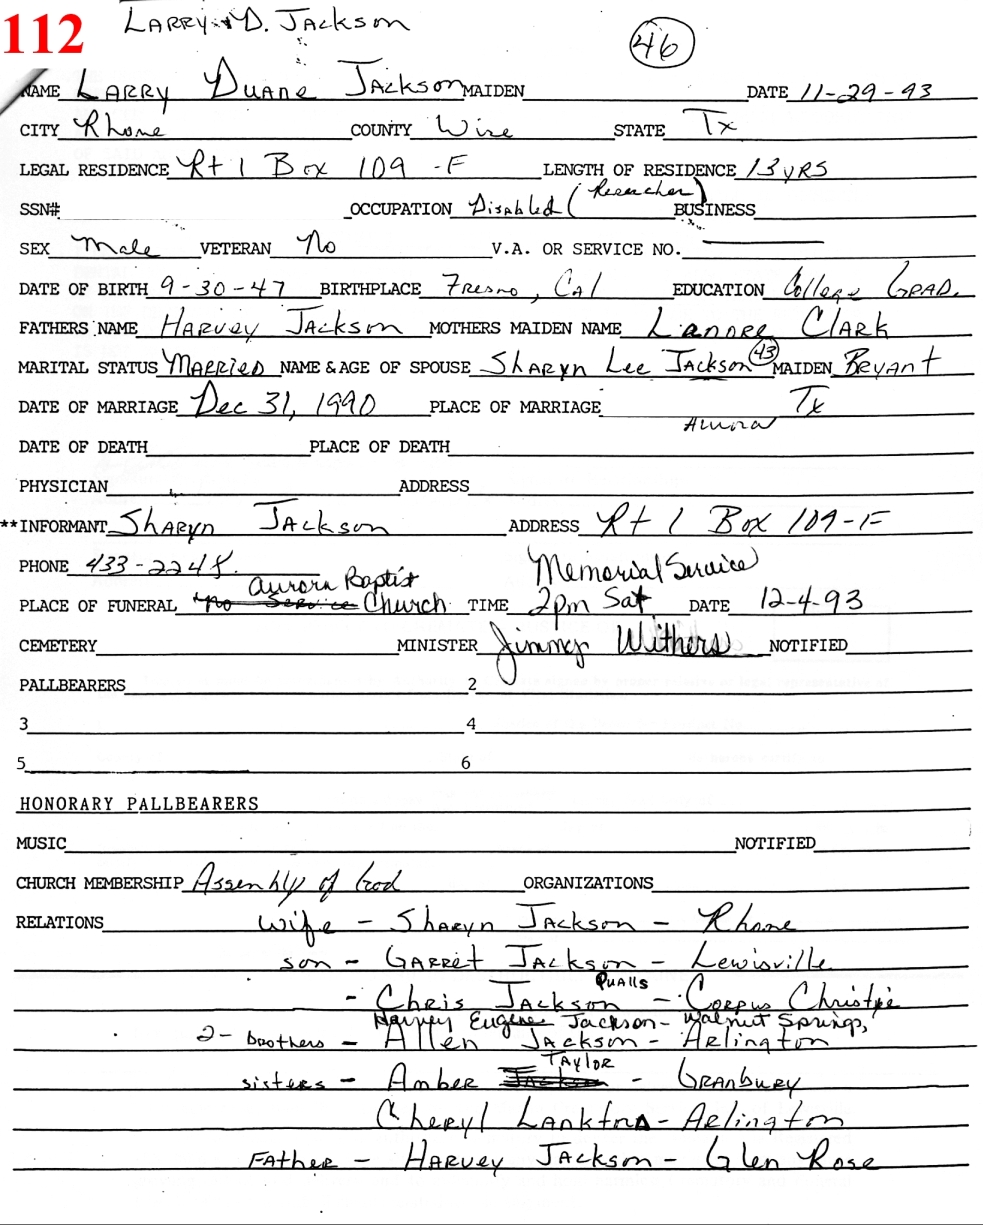 112 LARRY D. JACKSON
46
NAME LARRY DUANE JACKSON MAIDEN DATE 11-29-93
CITY Rhome COUNTY Wise STATE Tx
LEGAL RESIDENCE Rt 1 Box 109 -F LENGTH OF RESIDENCE 13 yRS
SSN# OCCUPATION Disabled ( ) BUSINESS
SEX Male VETERAN No V.A. OR SERVICE NO.
DATE OF BIRTH 9-30-47 BIRTHPLACE Fresno, Cal EDUCATION College GRAD.
FATHERS NAME HARVEY JACKSON MOTHERS MAIDEN NAME Clark
MARITAL STATUS MARRIED NAME & AGE OF SPOUSE SHARYN Lee JACKSON 43 MAIDEN BRYANT
DATE OF MARRIAGE Dec 31, 1990 PLACE OF MARRIAGE Aurora Tx
DATE OF DEATH PLACE OF DEATH
PHYSICIAN ADDRESS
**INFORMANT SHARYN JACKSON ADDRESS Rt 1 Box 109-F
PHONE 433-2248. Memorial Service
Aurora Baptist
PLACE OF FUNERAL No Service Church TIME 2pm Sat DATE 12-4-93
CEMETERY MINISTER Jimmy Withers NOTIFIED
PALLBEARERS 2
3 4
5 6
HONORARY PALLBEARERS
MUSIC NOTIFIED
CHURCH MEMBERSHIP Assembly of God ORGANIZATIONS
RELATIONS wife - SHARYN JACKSON - Rhome
son - GARRET JACKSON - Lewisville
Qualls
- Chris JACKSON - Corpus Christi
Harvey Eugene Jackson - Walnut Springs,
2- brothers - Allen Jackson - Arlington
TAYLOR
sisters - Amber Jackson - GRANBURY
Cheryl Lankford - Arlington
FATHER - HARVEY JACKSON - Glen Rose